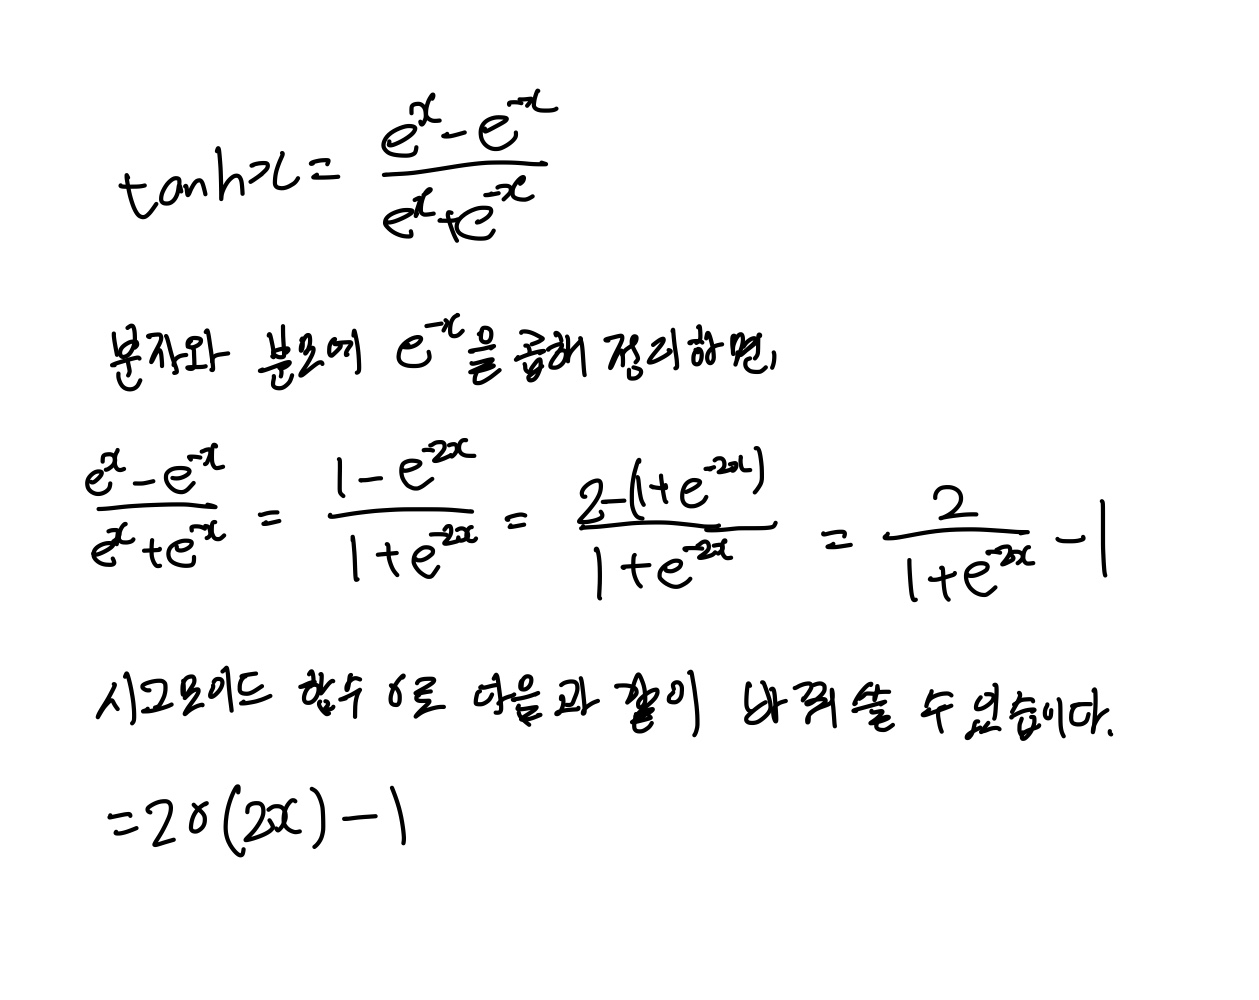 tanh x = (e^x - e^-x) / (e^x + e^-x)
분자와 분모에 e^-x을 곱해 정리하면,
(e^x - e^-x) / (e^x + e^-x) = (1 - e^-2x) / (1 + e^-2x) = (2 - (1 + e^-2x)) / (1 + e^-2x) = 2 / (1 + e^-2x) - 1
시그모이드 함수 σ로 다음과 같이 바꿔 쓸 수 있습니다.
= 2σ(2x) - 1